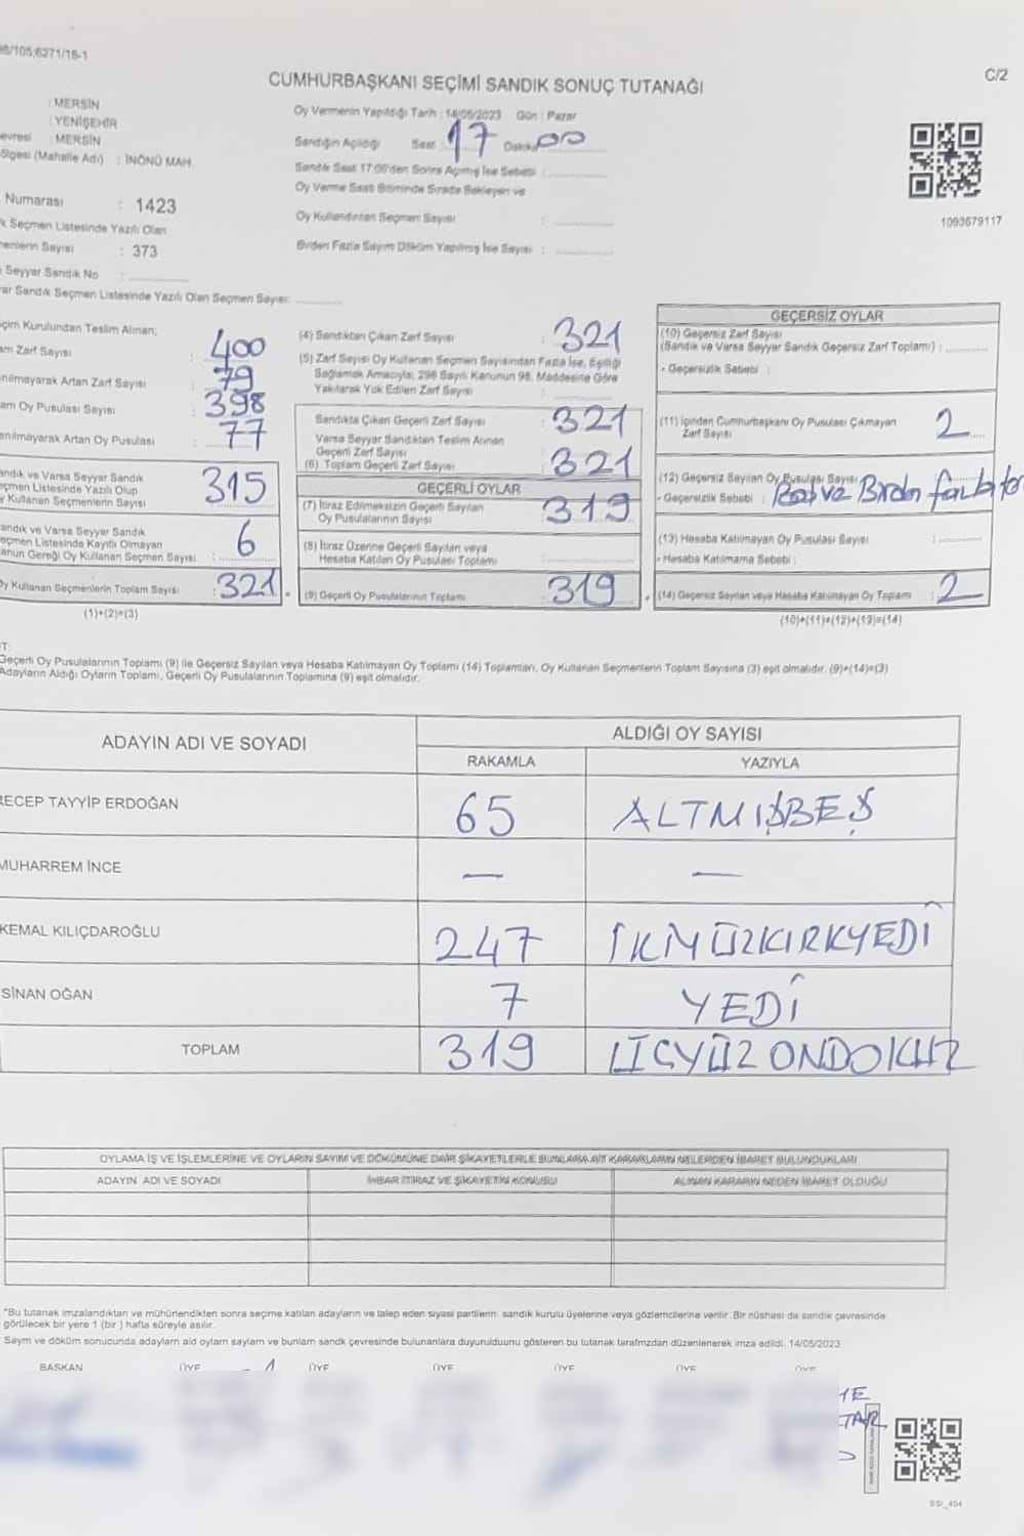 98/105;6271/18-1
C/2
CUMHURBAŞKANI SEÇİMİ SANDIK SONUÇ TUTANAĞI
: MERSİN
: YENİŞEHİR
: MERSİN
(Mahalle Adı) : İNÖNÜ MAH.
Numarası : 1423
Seçmen Listesinde Yazılı Olan
Sayısı : 373
Seyyar Sandık No :
Sandık Seçmen Listesinde Yazılı Olan Seçmen Sayısı:
Oy Vermenin Yapıldığı Tarih : 14/05/2023 Gün : Pazar
Sandığın Açıldığı Saat : 17 Dakika 00
Sandık Saat 17:00'den Sonra Açılmış İse Sebebi :
Oy Verme Saati Bitiminde Sırada Bekleyen ve
Oy Kullandırılan Seçmen Sayısı :
Birden Fazla Sayım Döküm Yapılmış İse Sayısı :
1093679117
Kurulundan Teslim Alınan;
Zarf Sayısı : 400
Artan Zarf Sayısı : 79
Oy Pusulası Sayısı : 398
Artan Oy Pusulası : 77
ve Varsa Seyyar Sandık
Listesinde Yazılı Olup
Kullanan Seçmenlerin Sayısı 315
ve Varsa Seyyar Sandık
Listesinde Kayıtlı Olmayan
Gereği Oy Kullanan Seçmen Sayısı : 6
Kullanan Seçmenlerin Toplam Sayısı : 321
(1)+(2)=(3)
(4) Sandıktan Çıkan Zarf Sayısı : 321
(5) Zarf Sayısı Oy Kullanan Seçmen Sayısından Fazla İse, Eşitliği
Sağlamak Amacıyla, 298 Sayılı Kanunun 98. Maddesine Göre
Yakılarak Yok Edilen Zarf Sayısı :
Sandıkta Çıkan Geçerli Zarf Sayısı : 321
Varsa Seyyar Sandıktan Teslim Alınan
Geçerli Zarf Sayısı :
(6) Toplam Geçerli Zarf Sayısı : 321
GEÇERLİ OYLAR
(7) İtiraz Edilmeksizin Geçerli Sayılan
Oy Pusulalarının Sayısı : 319
(8) İtiraz Üzerine Geçerli Sayılan veya
Hesaba Katılan Oy Pusulası Toplamı :
(9) Geçerli Oy Pusulalarının Toplamı : 319
GEÇERSİZ OYLAR
(10) Geçersiz Zarf Sayısı
(Sandık ve Varsa Seyyar Sandık Geçersiz Zarf Toplamı) :
- Geçersizlik Sebebi :
(11) İçinden Cumhurbaşkanı Oy Pusulası Çıkmayan
Zarf Sayısı : 2
(12) Geçersiz Sayılan Oy Pusulası Sayısı
- Geçersizlik Sebebi : ve Birden fazla
(13) Hesaba Katılmayan Oy Pusulası Sayısı :
- Hesaba Katılmama Sebebi :
(14) Geçersiz Sayılan veya Hesaba Katılmayan Oy Toplamı : 2
(10)+(11)+(12)+(13)=(14)
Geçerli Oy Pusulalarının Toplamı (9) ile Geçersiz Sayılan veya Hesaba Katılmayan Oy Toplamı (14) Toplamları, Oy Kullanan Seçmenlerin Toplam Sayısına (3) eşit olmalıdır. (9)+(14)=(3)
Adayların Aldığı Oyların Toplamı, Geçerli Oy Pusulalarının Toplamına (9) eşit olmalıdır.
ADAYIN ADI VE SOYADI ALDIĞI OY SAYISI
RAKAMLA YAZIYLA
RECEP TAYYİP ERDOĞAN 65 ALTMIŞBEŞ
MUHARREM İNCE — —
KEMAL KILIÇDAROĞLU 247 İKİYÜZKIRKYEDİ
SİNAN OĞAN 7 YEDİ
TOPLAM 319 ÜÇYÜZ ONDOKUZ
OYLAMA İŞ VE İŞLEMLERİNE VE OYLARIN SAYIM VE DÖKÜMÜNE DAİR ŞİKAYETLERLE BUNLARA AİT KARARLARIN NELERDEN İBARET BULUNDUKLARI
ADAYIN ADI VE SOYADI İHBAR İTİRAZ VE ŞİKAYETİN KONUSU ALINAN KARARIN NEDEN İBARET OLDUĞU
*Bu tutanak imzalandıktan ve mühürlendikten sonra seçime katılan adayların ve talep eden siyasi partilerin sandık kurulu üyelerine veya gözlemcilerine verilir. Bir nüshası da sandık çevresinde
görülecek bir yere 1 (bir) hafta süreyle asılır.
Sayım ve döküm sonucunda adayların ald oyların sayıları ve bunların sandık çevresinde bulunanlara duyurulduunu gösteren bu tutanak tarafımızdan düzenlenerek imza edildi. 14/05/2023
BAŞKAN ÜYE ÜYE ÜYE ÜYE ÜYE ÜYE